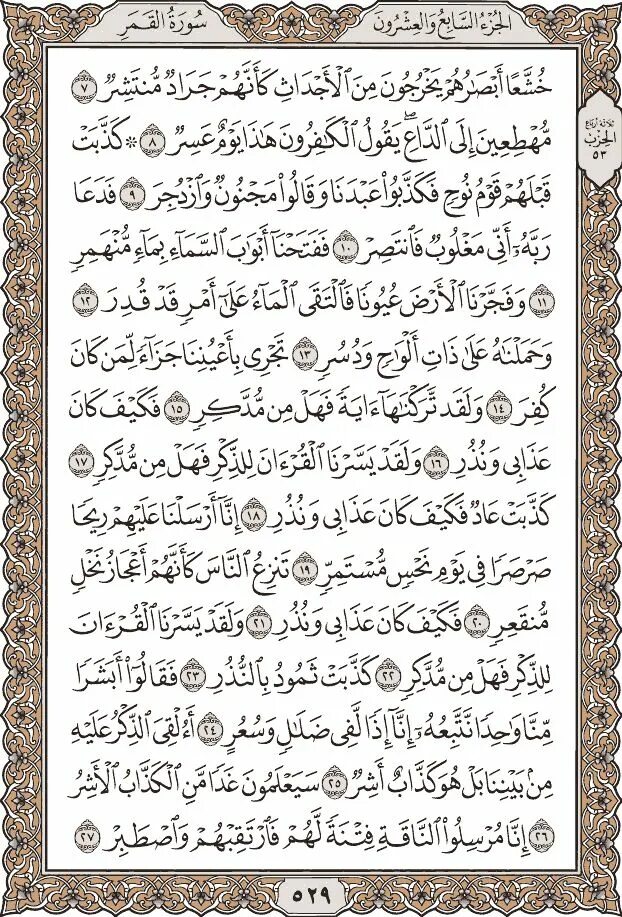 الجزء السابع والعشرون
سورة القمر
خُشَّعًا أَبْصَٰرُهُمْ يَخْرُجُونَ مِنَ ٱلْأَجْدَاثِ كَأَنَّهُمْ جَرَادٌ مُّنتَشِرٌ ٧
مُّهْطِعِينَ إِلَى ٱلدَّاعِۖ يَقُولُ ٱلْكَٰفِرُونَ هَٰذَا يَوْمٌ عَسِرٌ ٨ ۞ كَذَّبَتْ
قَبْلَهُمْ قَوْمُ نُوحٍ فَكَذَّبُوا۟ عَبْدَنَا وَقَالُوا۟ مَجْنُونٌ وَٱزْدُجِرَ ٩ فَدَعَا
رَبَّهُۥٓ أَنِّى مَغْلُوبٌ فَٱنتَصِرْ ١٠ فَفَتَحْنَآ أَبْوَٰبَ ٱلسَّمَآءِ بِمَآءٍ مُّنْهَمِرٍ
١١ وَفَجَّرْنَا ٱلْأَرْضَ عُيُونًا فَٱلْتَقَى ٱلْمَآءُ عَلَىٰٓ أَمْرٍ قَدْ قُدِرَ ١٢
وَحَمَلْنَٰهُ عَلَىٰ ذَاتِ أَلْوَٰحٍ وَدُسُرٍ ١٣ تَجْرِى بِأَعْيُنِنَا جَزَآءً لِّمَن كَانَ
كُفِرَ ١٤ وَلَقَد تَّرَكْنَٰهَآ ءَايَةً فَهَلْ مِن مُّدَّكِرٍ ١٥ فَكَيْفَ كَانَ
عَذَابِى وَنُذُرِ ١٦ وَلَقَدْ يَسَّرْنَا ٱلْقُرْءَانَ لِلذِّكْرِ فَهَلْ مِن مُّدَّكِرٍ ١٧
كَذَّبَتْ عَادٌ فَكَيْفَ كَانَ عَذَابِى وَنُذُرِ ١٨ إِنَّآ أَرْسَلْنَا عَلَيْهِمْ رِيحًا
صَرْصَرًا فِى يَوْمِ نَحْسٍ مُّسْتَمِرٍّ ١٩ تَنزِعُ ٱلنَّاسَ كَأَنَّهُمْ أَعْجَازُ نَخْلٍ
مُّنقَعِرٍ ٢٠ فَكَيْفَ كَانَ عَذَابِى وَنُذُرِ ٢١ وَلَقَدْ يَسَّرْنَا ٱلْقُرْءَانَ
لِلذِّكْرِ فَهَلْ مِن مُّدَّكِرٍ ٢٢ كَذَّبَتْ ثَمُودُ بِٱلنُّذُرِ ٢٣ فَقَالُوٓا۟ أَبَشَرًا
مِّنَّا وَٰحِدًا نَّتَّبِعُهُۥٓ إِنَّآ إِذًا لَّفِى ضَلَٰلٍ وَسُعُرٍ ٢٤ أَءُلْقِىَ ٱلذِّكْرُ عَلَيْهِ
مِنۢ بَيْنِنَا بَلْ هُوَ كَذَّابٌ أَشِرٌ ٢٥ سَيَعْلَمُونَ غَدًا مَّنِ ٱلْكَذَّابُ ٱلْأَشِرُ
٢٦ إِنَّا مُرْسِلُوا۟ ٱلنَّاقَةِ فِتْنَةً لَّهُمْ فَٱرْتَقِبْهُمْ وَٱصْطَبِرْ ٢٧
ثلاثة أرباع
الحزب
٥٣
٥٢٩